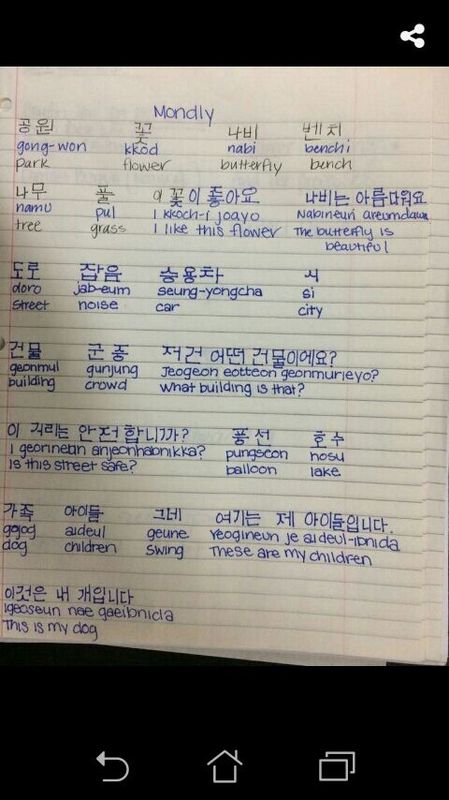 Mondly
공원 꽃 나비 벤치
gong-won kkod nabi benchi
park flower butterfly bench
나무 풀 이 꽃이 좋아요 나비는 아름다워요
namu pul I kkoch-i joayo Nabineun areumdawo
tree grass I like this flower The butterfly is
beautiful
도로 잡음 승용차 시
doro jab-eum seung-yongcha si
street noise car city
건물 군중 저건 어떤 건물이에요?
geonmul gunjung Jeogeon eotteon geonmurieyo?
building crowd What building is that?
이 거리는 안전합니까? 풍선 호수
I georineun anjeonhabnikka? pungseon hosu
Is this street safe? balloon lake
가족 아이들 그네 여기는 제 아이들입니다.
gajog aideul geune Yeogineun je aideul-ibnida
dog children swing These are my children
이것은 내 개입니다
Igeoseun nae gaeibnida
This is my dog